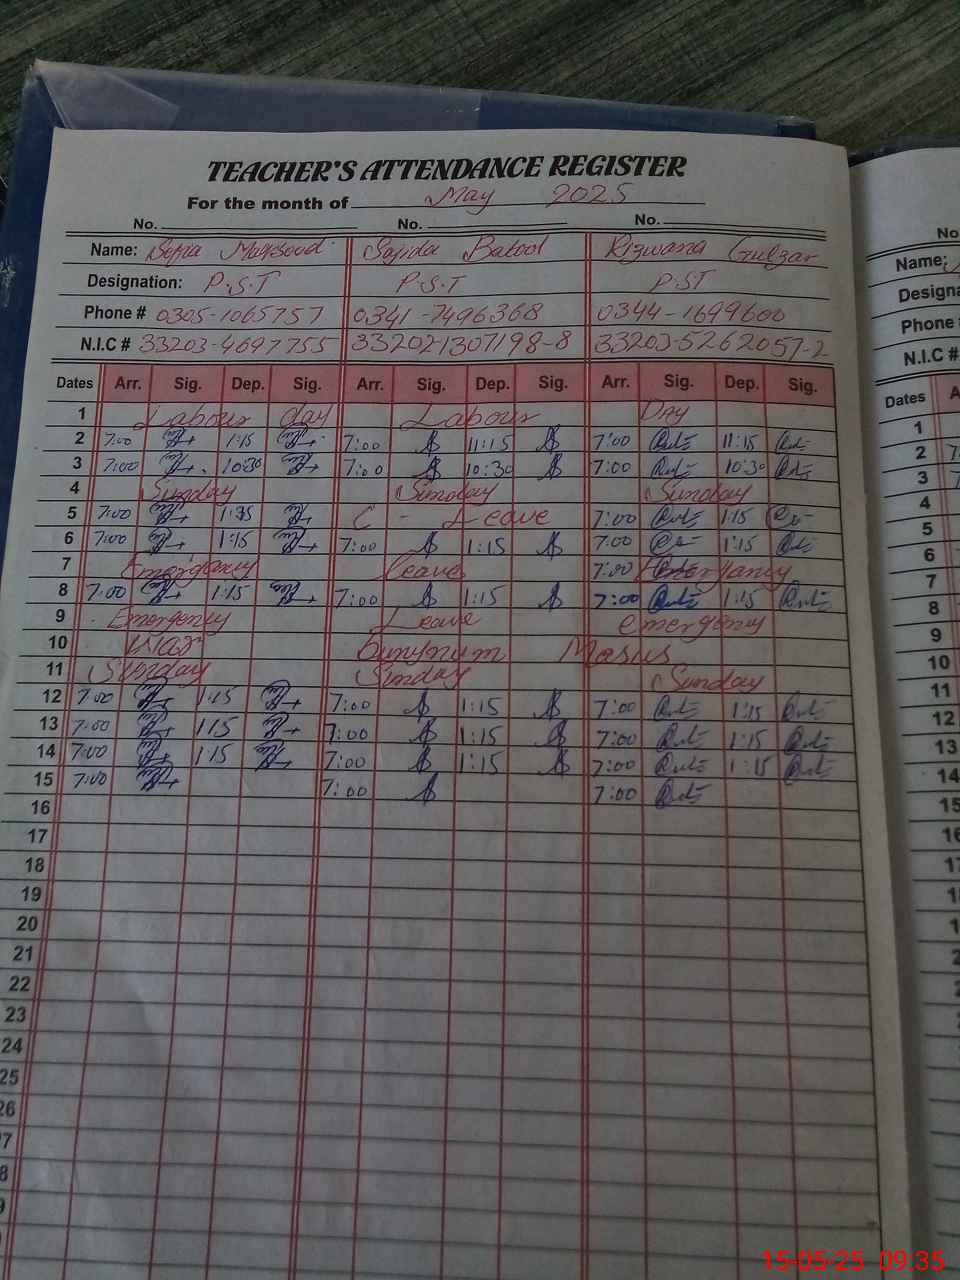 TEACHER'S ATTENDANCE REGISTER
For the month of May 2025
No. No. No.
Name: Sofia Maqsood Sajida Batool Rizwana Gulzar
Designation: P.S.T P.S.T P.ST
Phone # 0305-1065757 0341-7496368 0344-1699600
N.I.C # 33203-4697755 332021307198-8 33203-5262057-2
Dates Arr. Sig. Dep. Sig. Arr. Sig. Dep. Sig. Arr. Sig. Dep. Sig.
1 Labour day Labour Day
2 7:00 1:15 7:00 11:15 7:00 11:15
3 7:00 10:30 7:00 10:30 7:00 10:30
4 Sunday Sunday Sunday
5 7:00 1:35 C - Leave 7:00 1:15
6 7:00 1:15 7:00 1:15 7:00 1:15
7 Emergency leave 7:00 Emergancy
8 7:00 1:15 7:00 1:15 7:00 1:15
9 Emergency Leave emergency
10 War
11 Sunday Sunday Sunday
12 7:00 1:15 7:00 1:15 7:00 1:15
13 7:00 1:15 7:00 1:15 7:00 1:15
14 7:00 1:15 7:00 1:15 7:00 1:15
15 7:00 7:00 7:00
16
17
18
19
20
21
22
23
24
25
26
7
8
9
No
Name:
Designa
Phone #
N.I.C #
Dates A
1
2 7
3 7
4
5
6
7
8
9
10
11
12
13
14
15
16
17
18
15-05-25 09:35